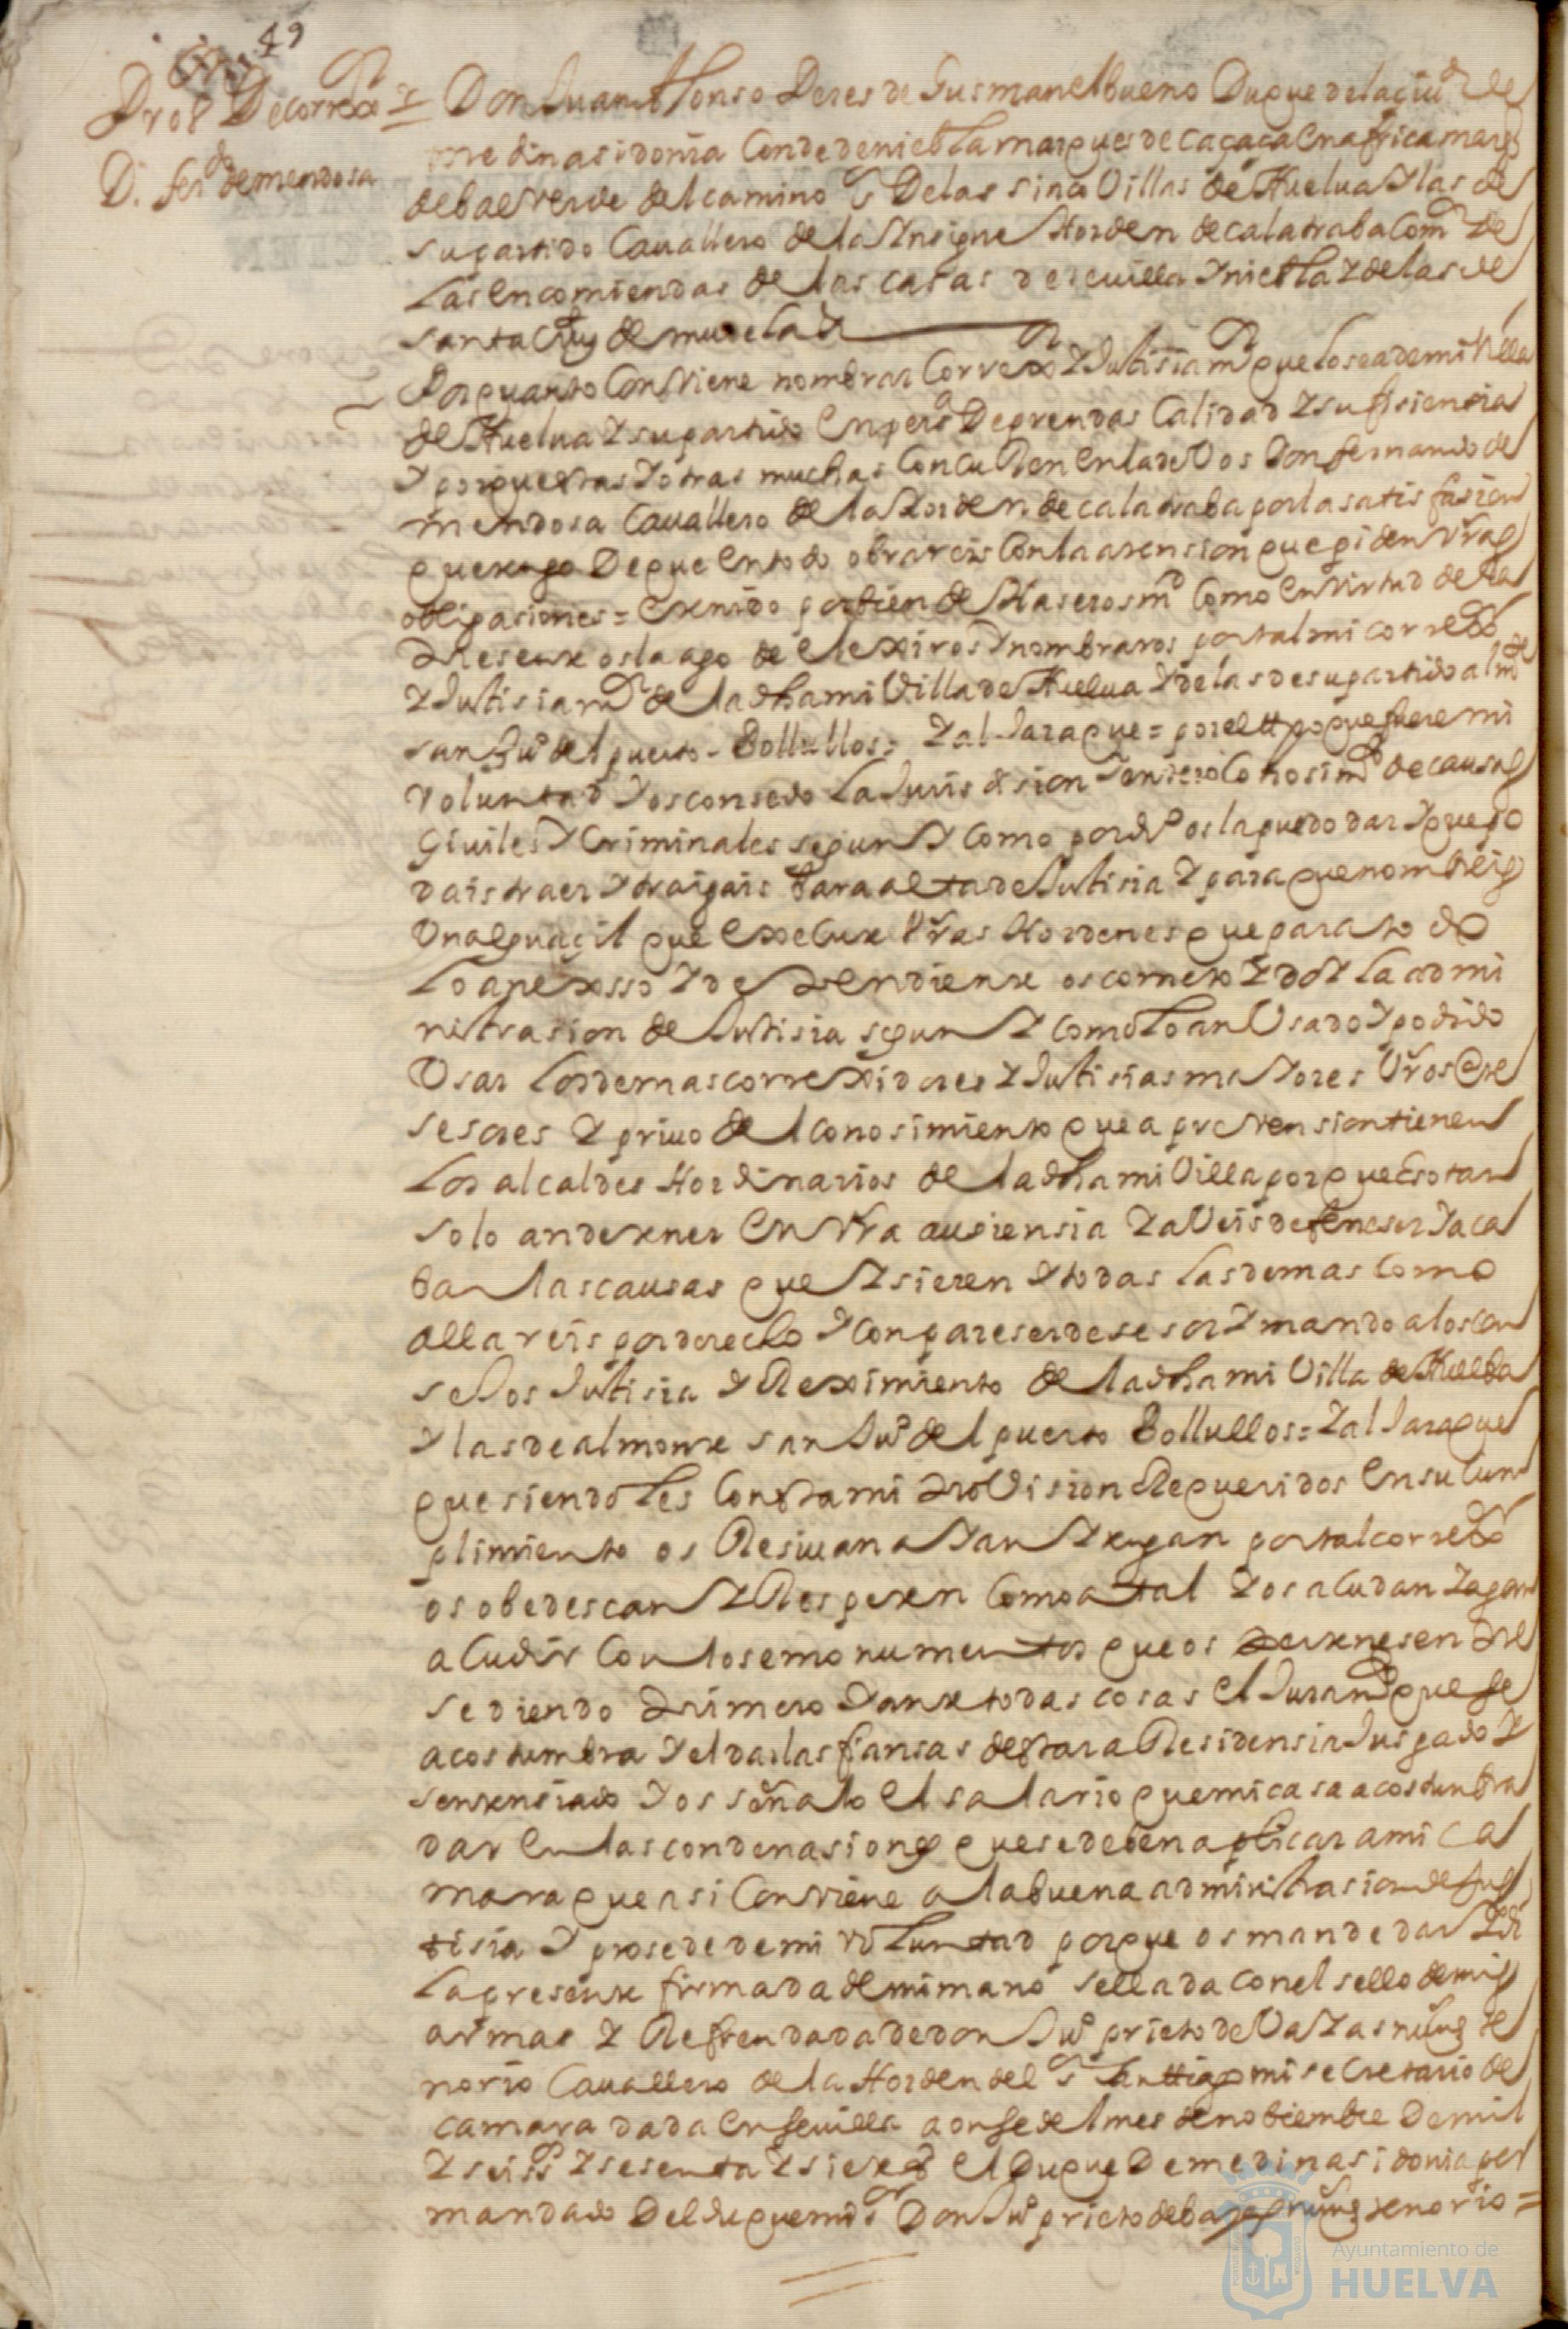 49
Prov Decorrexor
D. ferdo demendosa
Don Juan Alonso Peres de Gusman el bueno Duque de la çiud de
medina sidonia Conde de niebla marques de caçaça en africa marqs
de balverde del camino sr De las sinco Villas de Huelua Y las de
su partido Cauallero de la Ynsigne Horden de calatraba Comdor de
las encomiendas de las casas de seuilla Y niebla Y de las de
santa Cruz de mudela &
Por quanto Conviene nombrar Correxor Y Justisia mor que lo sea de mi Villa
de Huelua Y su partido en persa De prendas Calidad Y sufisiensia
Y porque estas Y otras muchas Concurren en la de Vos Don fernando de
mendosa Cauallero de la Horden de calatraba por la satisfasion
que tengo De que en todo obrareis Con la atension que piden Vras
obligasiones = e tenido por bien de Haseros md Como en Virtud de la
Presente os la ago de elexiros Y nombraros por tal mi correxor
Y Justisia mor de la dha mi Villa de Huelua Y de las de su partido almte
san Juo del puerto - Bollullos = Y aljaraque = por el tpo que fuere mi
voluntad Y os consedo La Jurisdision Y entero Conosimto de causas
Çiuiles Y Criminales segun Y Como por dro os la puedo dar Y que po
dais traer Y traigais bara alta de Justisia Y para que nombreis
Un alguaçil que execute Vras Hordenes que para todo
lo anexosso Y dependiente os cometo Y doy la admi
nistrasion de Justisia segun Y como lo an Usado Y podido
Usar los demas correxidores Y Justisias maiores Vros Ante
sesores Y priuo del conosimiento que a prevension tienen
los alcaldes Hordinarios de la dha mi Villa porque eso tan
solo an de tener en Vra ausiensia Y aveis de feneser Y aca
bar las causas que Ysieren Y todas las demas Como
allareis por derecho Y con pareser de asesor Y mando a los con
sejos Justisia Y Reximiento de la dha mi Villa de Huelba
Y las de almonte san Juo del puerto Bollullos = Y aljaraque
que siendoles Con esta mi Provision Requeridos en su Cun
plimiento os Resiuan ayan Y tengan por tal correxor
os obedescan Y Respeten Como a tal Y os acudan Y agan
acudir Con los emonumentos que os pertenesen Pre
sediendo Primero Y ante todas cosas el Juramto que se
acostumbra Y el dar las fiansas de estar a Residensia Jusgado Y
sentensiado Y os señalo el salario que mi casa acostunbra
dar en las condenasiones que se deben aplicar a mi Ca
mara que asi Conviene a la buena administrasion de Jus
tisia Y prosede de mi voluntad porque os mande dar Y di
la presente firmada de mi mano sellada con el sello de mis
armas Y Refrendada de don Juo prieto de Vayas nuñes te
norio Cauallero de la Horden del sr santtiago mi secretario de
camara dada en seuilla a onse del mes de nobiembre De mil
Y seiss Y sesenta Y siete as el Duque De medina sidonia por
mandado Del duque mi sr Don Juo prieto de bayas nuñes tenorio =
Ayuntamiento de
HUELVA